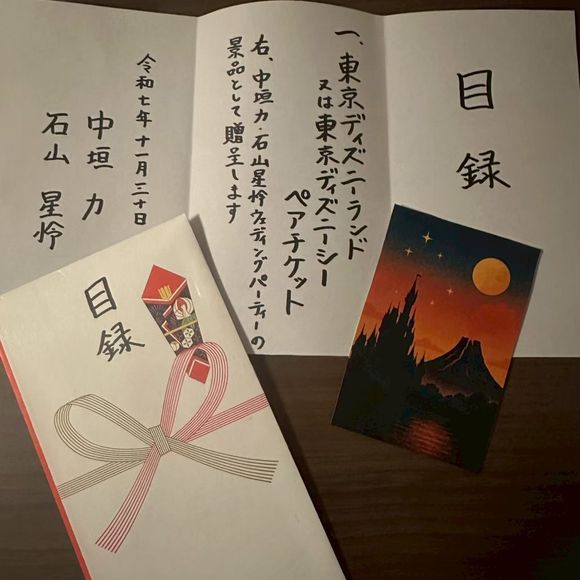 目録
一、東京ディズニーランド
又は東京ディズニーシー
ペアチケット
右、中垣力・石山星怜ウェディングパーティーの
景品として贈呈します
令和七年十一月三十日
中垣 力
石山 星怜
目録